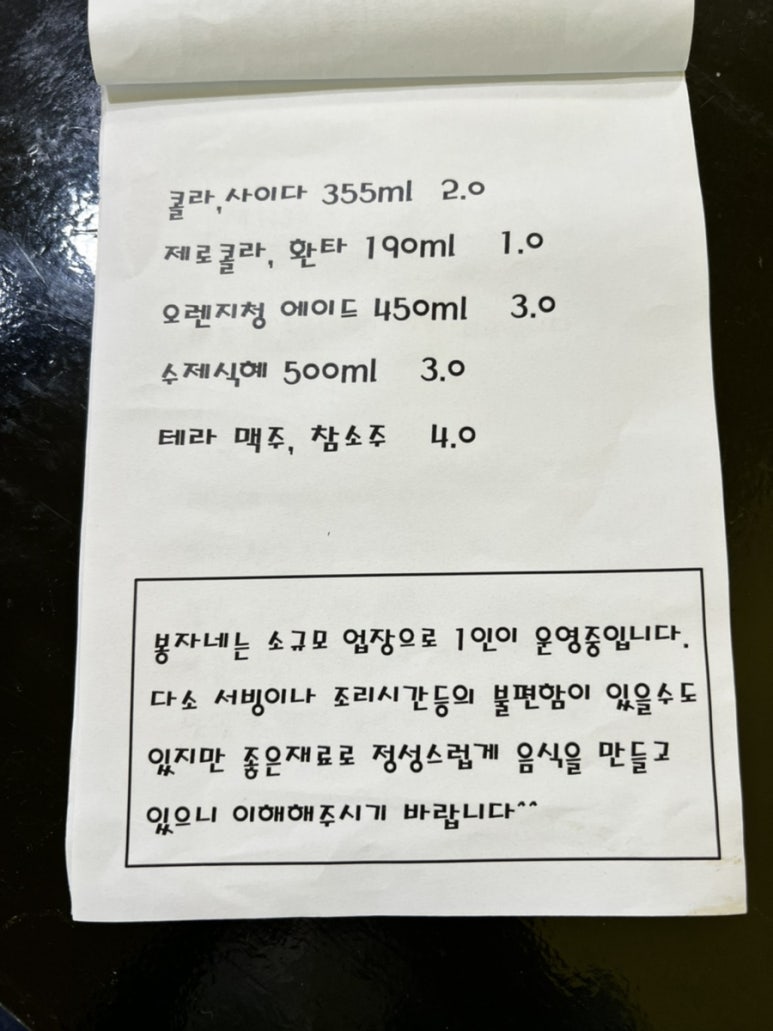 콜라,사이다 355ml 2.0
제로콜라, 환타 190ml 1.0
오렌지청 에이드 450ml 3.0
수제식혜 500ml 3.0
테라 맥주, 참소주 4.0
봉자네는 소규모 업장으로 1인이 운영중입니다.
다소 서빙이나 조리시간등의 불편함이 있을수도
있지만 좋은재료로 정성스럽게 음식을 만들고
있으니 이해해주시기 바랍니다^^